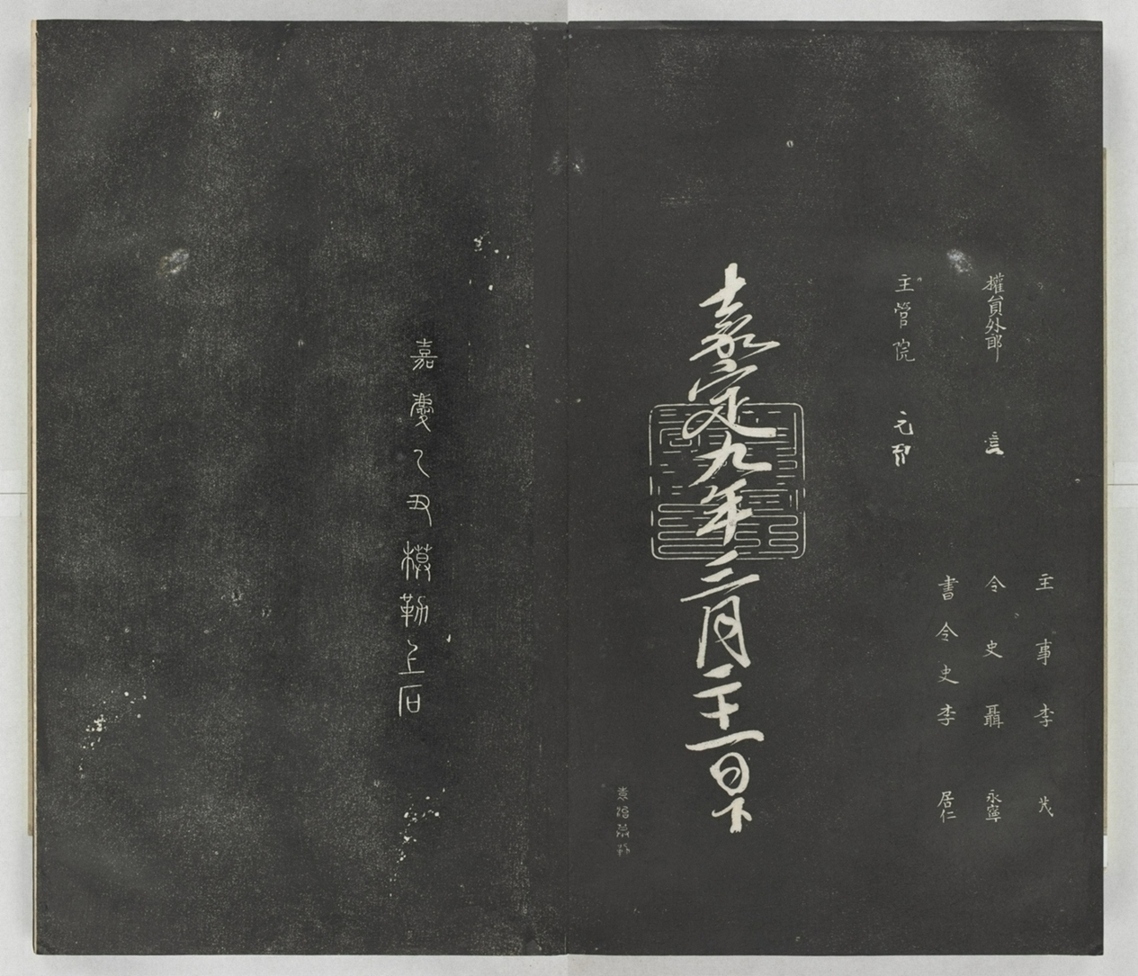 主事李茂
權員外郎
令史聶永寧
書令史李居仁
主管院
嘉定九年三月二十一日下
嘉慶乙丑模勒上石